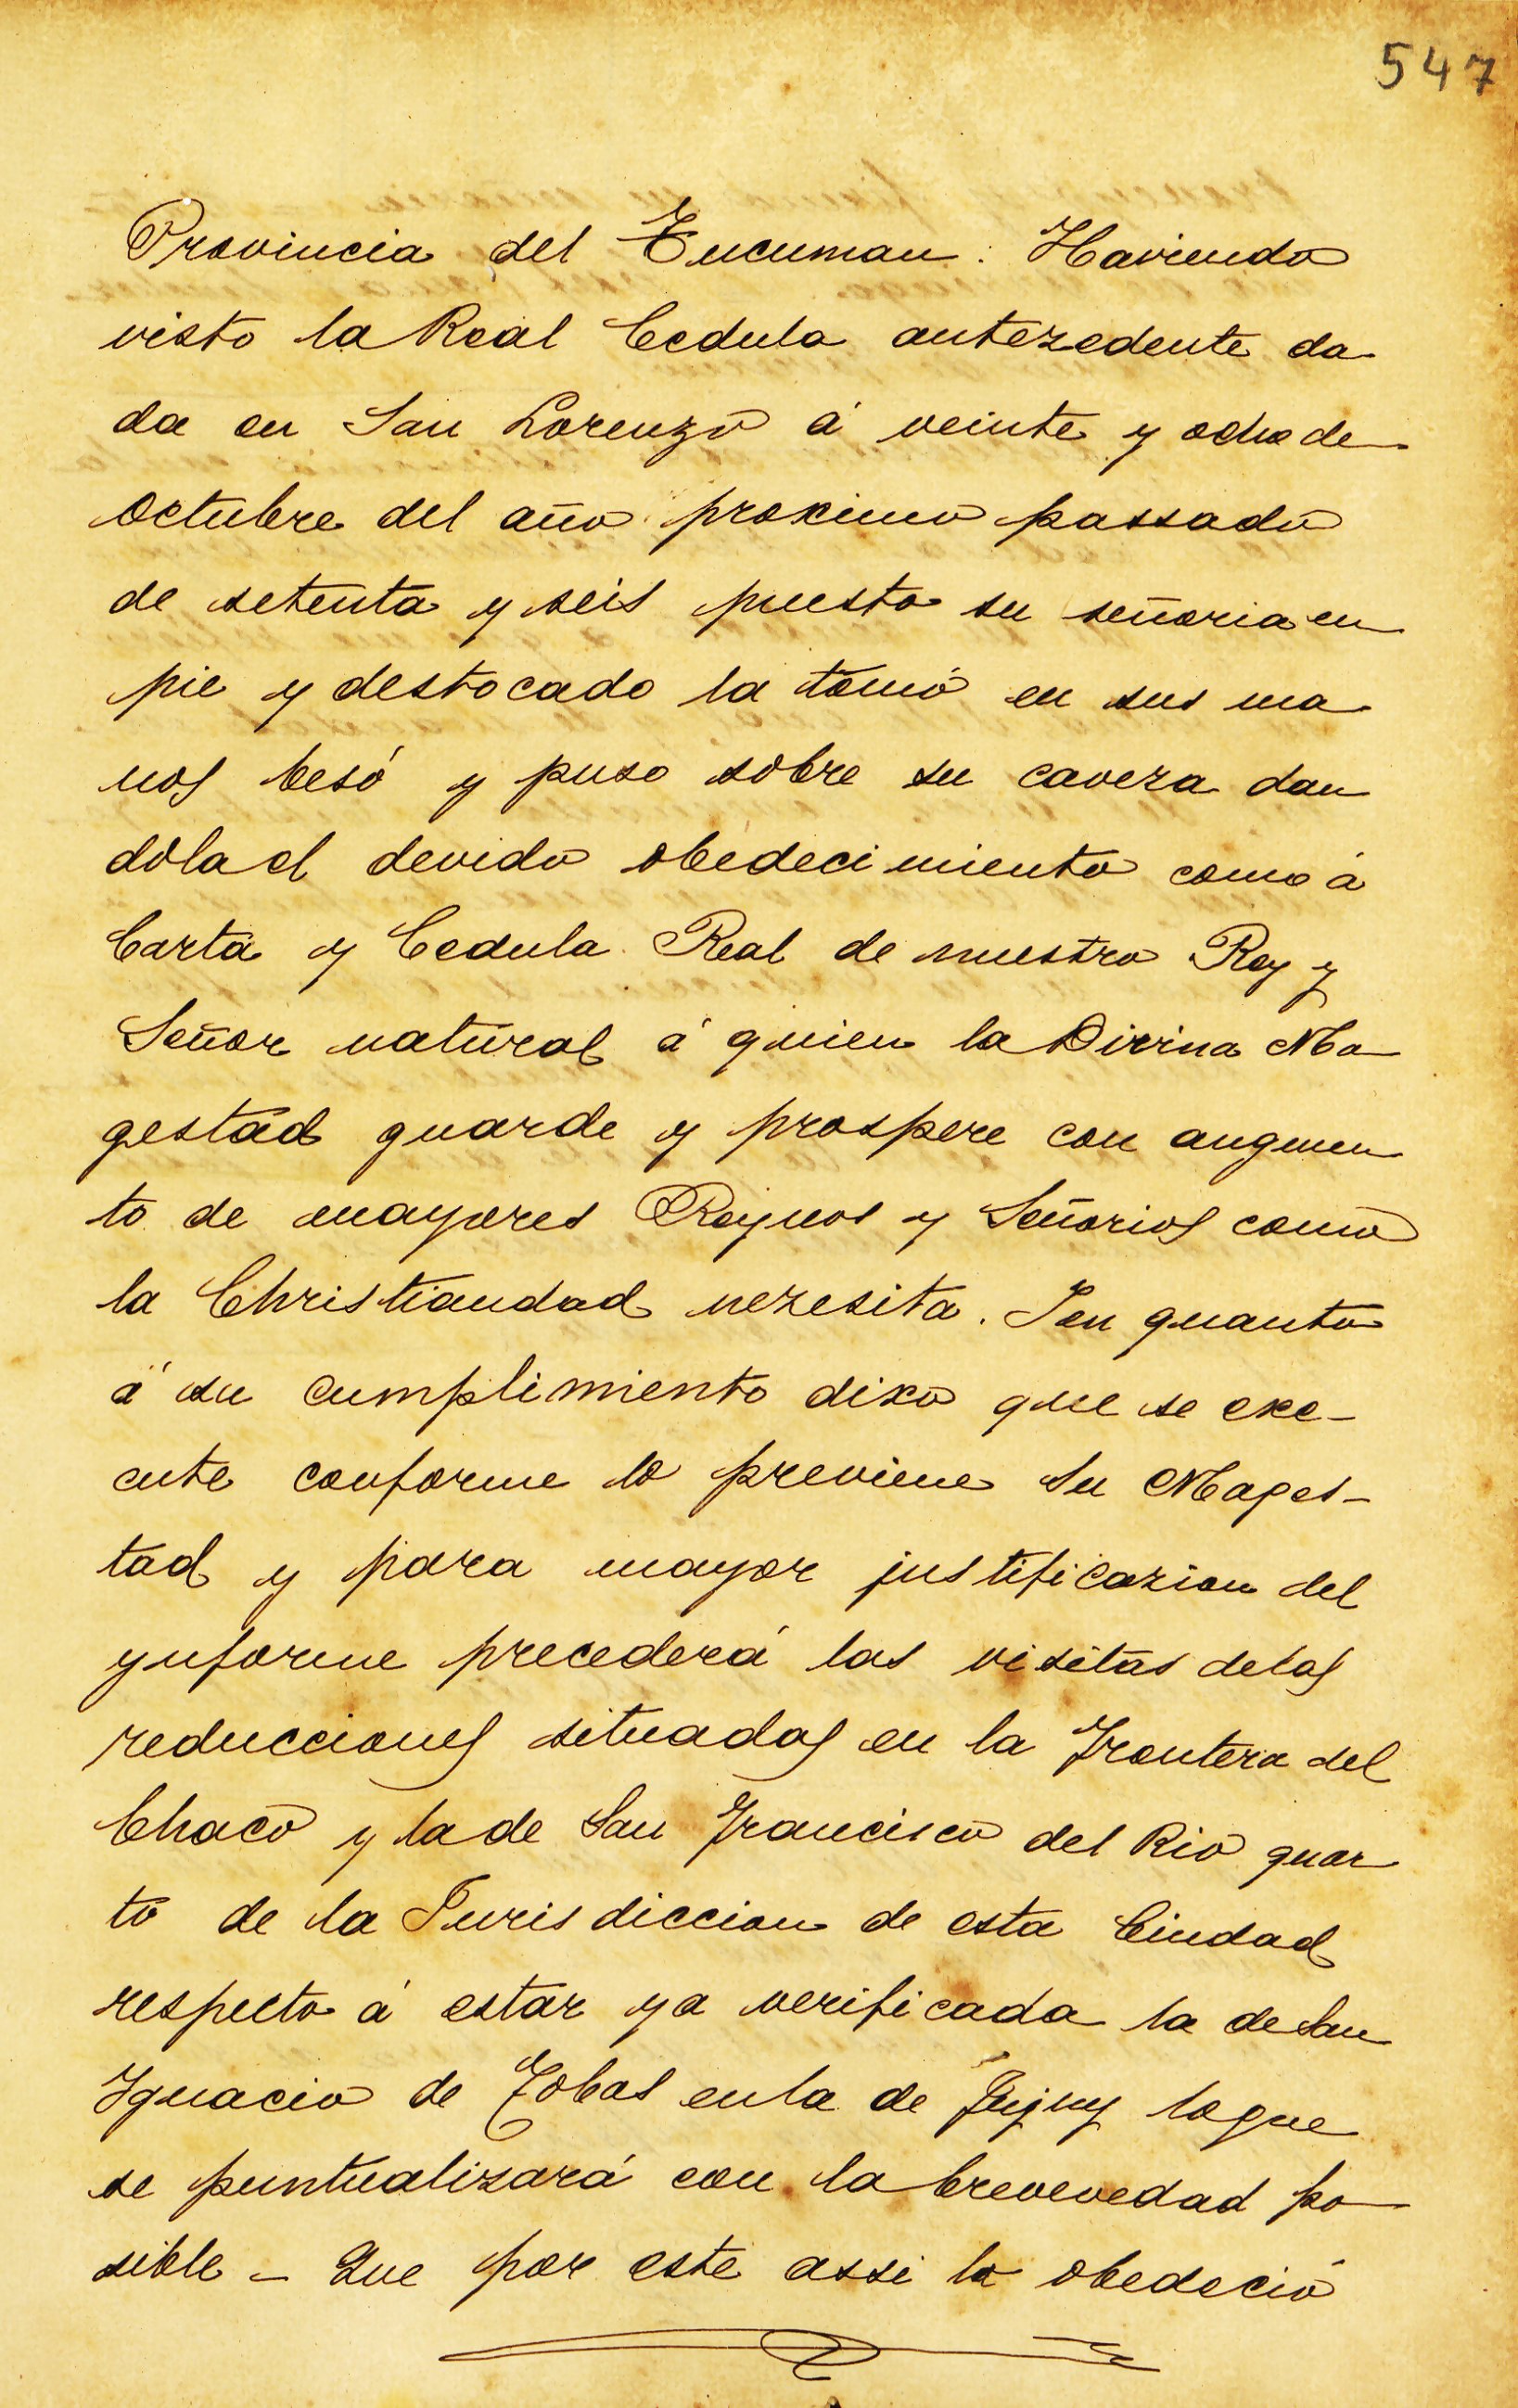 547
Provincia del Tucuman. Haviendo
visto la Real Cedula antezedente da
da en San Lorenzo á veinte y ocho de
octubre del año proximo passado
de setenta y seis puesto su señoria en
pie y destocado la tomó en sus ma
nos besó y puso sobre su caveza dan
dola el devido obedecimiento como á
Carta y Cedula Real de nuestro Rey y
Señor natural á quien la Divina Ma
gestad guarde y prospere con augmen
to de mayores Reynos y Señorios como
la Christiandad nezesita. I en quanto
á su cumplimiento dixo que se exe-
cute conforme lo previene Su Mages-
tad y para mayor justificazion del
ynforme precederá las visitas de las
reducciones situadas en la Frontera del
Chaco y la de San Francisco del Rio quar
to de la Jurisdiccion de esta Ciudad
respecto á estar ya verificada la de San
Ignacio de Tobas en la de Jujuy loque
se puntualizará con la brevevedad po
sible - Que por este assi lo obedeció